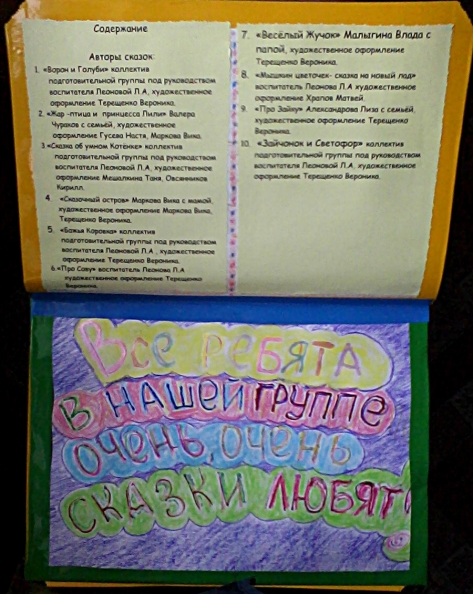 Содержание
Авторы сказок:
1. «Ворон и Голуби» коллектив
подготовительной группы под руководством
воспитателя Леоновой Л.А, художественное
оформление Терещенко Вероника.
2. «Жар –птица и принцесса Лилия» Валера
Чураков с семьёй, художественное
оформление Гусева Настя, Маркова Вика.
3.«Сказка об умном Котёнке» коллектив
подготовительной группы под руководством
воспитателя Леоновой Л.А, художественное
оформление Мешалкина Таня, Овсянников
Кирилл.
4. «Сказочный остров» Маркова Вика с мамой,
художественное оформление Маркова Вика,
Терещенко Вероника.
5. «Божья Коровка» коллектив
подготовительной группы под руководством
воспитателя Леоновой Л.А , художественное
оформление Терещенко Вероника.
6.«Про Сову» воспитатель Леонова Л.А
художественное оформление Терещенко
Вероника.
7. «Весёлый Жучок» Малыгина Влада с
папой, художественное оформление
Терещенко Вероника.
8. «Мышкин цветочек- сказка на новый лад»
воспитатель Леонова Л.А художественное
оформление Храпов Матвей.
9. «Про Зайку» Александрова Лиза с семьёй,
художественное оформление Терещенко
Вероника.
10. «Зайчонок и Светофор» коллектив
подготовительной группы под руководством
воспитателя Леоновой Л.А, художественное
оформление Терещенко Вероника.
Все ребята
в нашей группе
очень, очень
сказки любят!